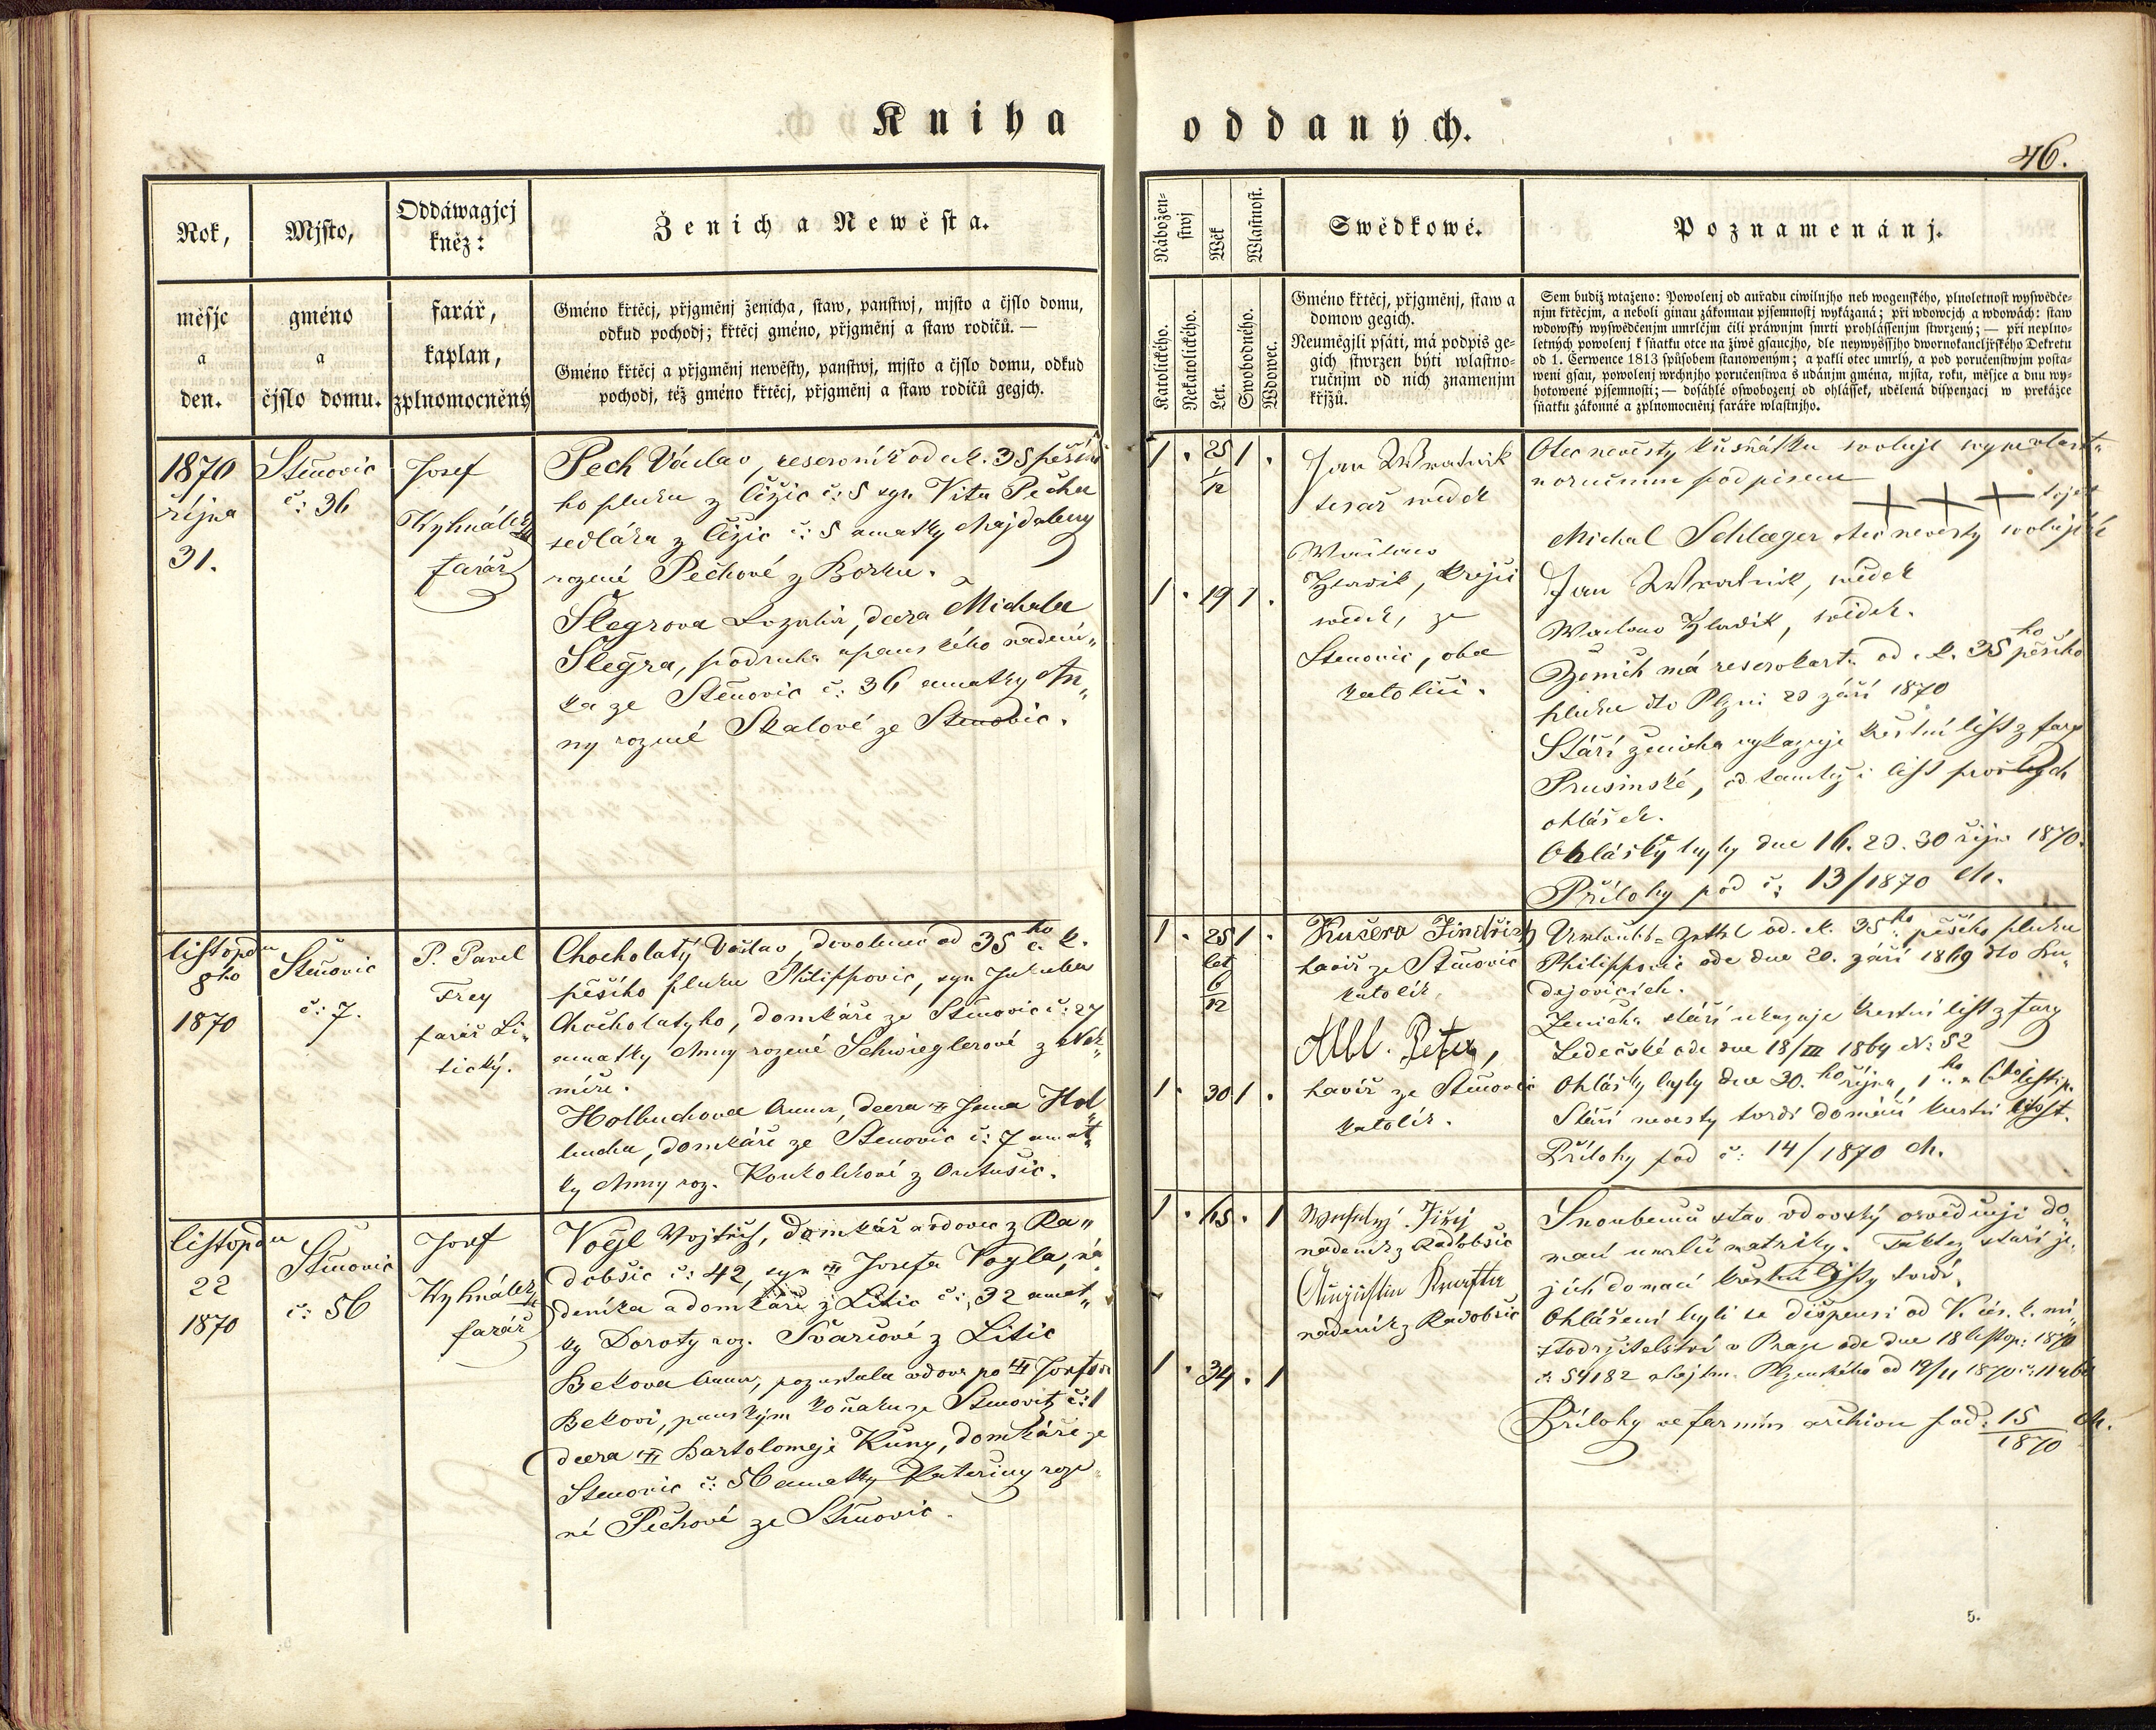 Kniha oddaných.
46.
Rok,
měsjc
a
den.
Mjsto,
gméno
a
čjslo domu.
Oddáwagjcj
kněz:
farář,
kaplan,
zplnomocněný
Ženich a Newěsta.
Gméno křtěcj, přjgměnj ženicha, staw, panstwj, mjsto a čjslo domu,
odkud pochodj; křtěcj gméno, přjgměnj a staw rodičů. —
Gméno křtěcj a přjgměnj newěsty, panstwj, mjsto a čjslo domu, odkud
pochodj, též gméno křtěcj, přjgměnj a staw rodičů gegjch.
Nábožen-
stwj
Wěk
Wlastnost.
Katolického.
Nekatolického.
Let.
Swobodného.
Wdowec.
Swědkowé.
Gméno křtěcj, přjgměnj, staw a
domow gegich.
Neuměgjli psáti, má podpis ge-
gich stwrzen býti wlastno-
ručnjm od nich znamenjm
křjžů.
Poznamenánj.
Sem budiž wtaženo: Powolenj od auřadu ciwilnjho neb wogenského, plnoletnost wyswědče-
njm křtěcjm, a neboli ginau zákonnau pjsemnostj wykázaná; při wdowcjch a wdowách: staw
wdowský wyswědčenjm umrlčjm čili práwnjm smrti prohlássenjm stwrzený; — při neplno-
letných powolenj k sňatku otce na žiwě gsaucjho, dle neywyššjho dwornokancljřského Dekretu
od 1. Července 1813 způsobem stanoweným; a pakli otec umrlý, a pod poručenstwjm posta-
weni gsau, powolenj wrchnjho poručenstwa s udánjm gména, mjsta, roku, měsjce a dnu wy-
hotowené pjsemnosti; — dosáhlé oswobozenj od ohlássek, udělená dispenzacj w prekážce
sňatku zákonné a zplnomocněnj faráře wlastnjho.
1870
října
31.
Štěnovic
č: 36
Josef
Kyhnálek
farář
Pech Václav, reservník od c.k. 35 pěší
ho pluku z Čižic č: 5 syn Víta Pecha
sedláka z Čižic č: 5 a matky Majdaleny
rozené Pechové z Borku.
Šlegrova Rozalia, dcera Michala
Šlegra, podruha a panského nadení„
ka ze Štěnovic č: 36 a matky An„
ny rozené Skalové ze Stěnovic.
1 . 25 1 .
1/12
1 . 19 1 .
Jan Wratnik
tesař svědek
Waclaw
Hlavik, krejčí
svedek, ze
Stenovic, oba
katolíci.
Otec nevěsty k sňatku svoluje
noručním podpisem
+ + + to jest
Michal Schlæger otec nevesty svolující
Jan Wratnik, svědek
Waclaw Hlavik, svědek.
Ženich má reservkartu od c.k. 35ho pěšího
pluku dto Plzni 20 září 1870
Stáří ženicha vykazuje křestní list z fary
Prusinské, od tamtéž i list prošlých
ohlášek.
Ohlášky byly dne 16. 23. 30 říjn 1870.
Přílohy pod č: 13/1870 M.
listopadu
8ho
1870
Štěnovic
č: 7.
P. Pavel
Frey
farář Li„
tický.
Chocholatý Václav, dovolenec od 35ho c. k.
pěšího pluku Philippovic, syn Jakuba
Chocholatýho, domkáře ze Stěnovic č: 27
a matky Anny rozené Schwieglerové z Nek„
míře.
Holbuchova Anna, dcera Jana Hol„
bucha, domkáře ze Stěnovic č: 7 a mat„
ky Anny roz. Koukolíkové z Ontušic.
1 . 25 1 .
let
6/12
1 . 30 1 .
Kučera Jindřich
havíř ze Stěnovic
katolík.
Albl. Peter,
havíř ze Stěnovic
katolík.
Urlaubs-Zettel od c.k. 35ho pěšího pluku
Philippovic ode dne 20. září 1869 dto Bu„
dějovicích.
Ženicha stáří ukazuje křestní list z fary
Ledecské ode dne 18/III 1869 N: 52
Ohlášky byly dne 30. ho října, 1ho a 6ho listop.
Stáří nevesty tvrdí domácí křestní list.
Přílohy pod č: 14/1870 M.
listopadu
22
1870
Štěnovic
č: 56
Josef
Kyhnálek
farář
Vogl Vojtěch, domkář a vdovec z Ra„
dobšic č: 42, syn Josefa Vogla, ná„
deníka a domkáře z Litic č: 32 a mat„
ky Doroty roz. Švarcové z Litic
Bekova Anna, pozustala vdova po Josefovi
Bekovi, panským ze Stěnovic č: 1
dcera Bartoloměje Kůny, domkáře ze
Stěnovic č: 56 a matky Kateřiny roze„
né Pechové ze Stěnovic.
1 . 65 . 1
1 . 34 . 1
Weselý Jiřej
nadeník z Radobšic
Augustin
nadeník z Radobšic
Snoubenců stav vdovský osvědčují do„
mací umrlčí matriky. Taktéž stáří je„
jich domací křestní listy tvrdí.
Ohlášení byli s dispensí od V. cís. k. mí„
stodržitelství v Praze ode dne 18 listop: 1870
č: 54182 a hejtm. Plzenského od 19/11 1870
Přílohy ve farním archivu pod: 15/1870 M.
5.